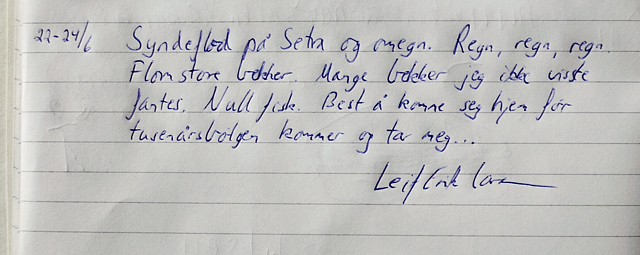 22-24/6 Syndeflod på Setra og omegn. Regn, regn, regn.
Flomstore bekker. Mange bekker jeg ikke visste
fantes. Null fisk. Best å komme seg hjem før
tusenårsbølgen kommer og tar meg...
Leif Erik